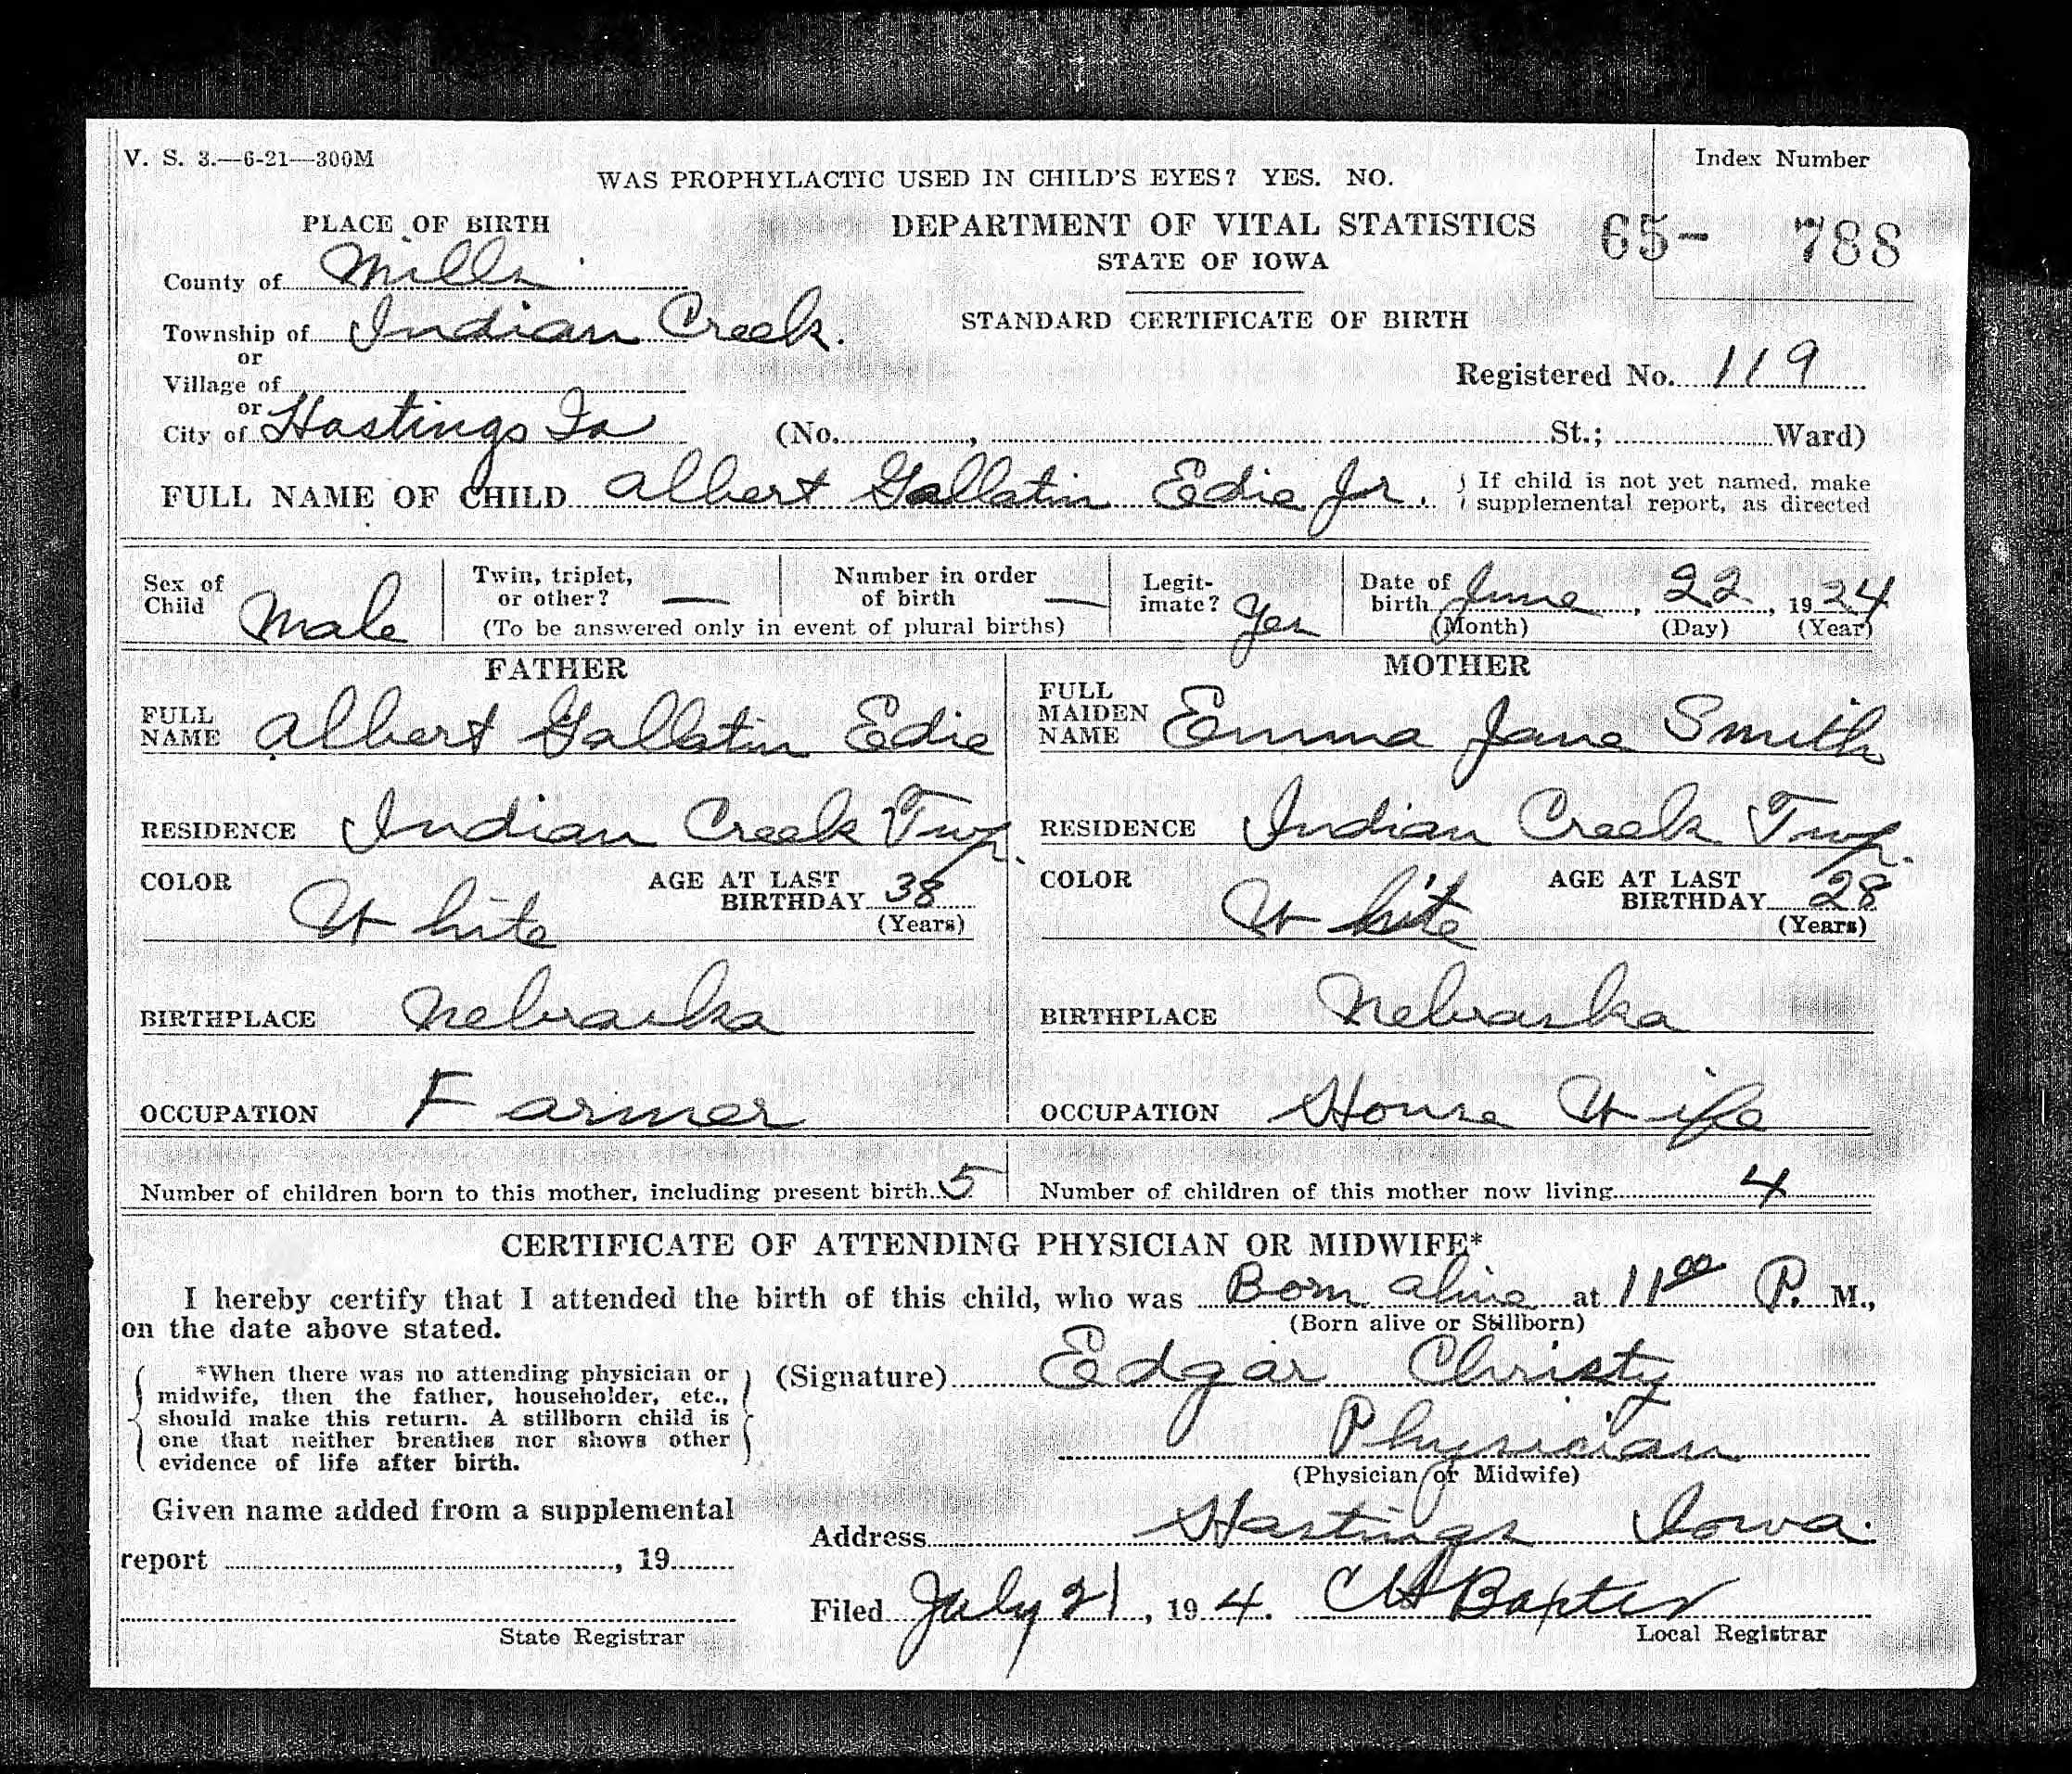 V. S. 3.—6-21—300M
Index Number
WAS PROPHYLACTIC USED IN CHILD'S EYES? YES. NO.
PLACE OF BIRTH
DEPARTMENT OF VITAL STATISTICS
65- 788
STATE OF IOWA
County of Mills
STANDARD CERTIFICATE OF BIRTH
Township of Indian Creek.
or
Village of
Registered No. 119
or
City of Hastings Ia (No. , St.; Ward)
FULL NAME OF CHILD Albert Gallatin Edie Jr. If child is not yet named, make
supplemental report, as directed
Sex of Child Male
Twin, triplet, or other? —
Number in order of birth —
(To be answered only in event of plural births)
Legit-
imate? Yes
Date of
birth June, 22, 1924
(Month) (Day) (Year)
FATHER
FULL NAME Albert Gallatin Edie
RESIDENCE Indian Creek Twp.
COLOR White
AGE AT LAST BIRTHDAY 38
(Years)
BIRTHPLACE Nebraska
OCCUPATION Farmer
MOTHER
FULL MAIDEN NAME Emma Jane Smith
RESIDENCE Indian Creek Twp.
COLOR White
AGE AT LAST BIRTHDAY 28
(Years)
BIRTHPLACE Nebraska
OCCUPATION House Wife
Number of children born to this mother, including present birth 5
Number of children of this mother now living 4
CERTIFICATE OF ATTENDING PHYSICIAN OR MIDWIFE*
I hereby certify that I attended the birth of this child, who was Born alive at 11 00 P. M.,
on the date above stated.
(Born alive or Stillborn)
*When there was no attending physician or
midwife, then the father, householder, etc.,
should make this return. A stillborn child is
one that neither breathes nor shows other
evidence of life after birth.
(Signature) Edgar Christy
Physician
(Physician or Midwife)
Given name added from a supplemental
report , 19
State Registrar
Address Hastings Iowa.
Filed July 21, 19 4. CH Baxter
Local Registrar